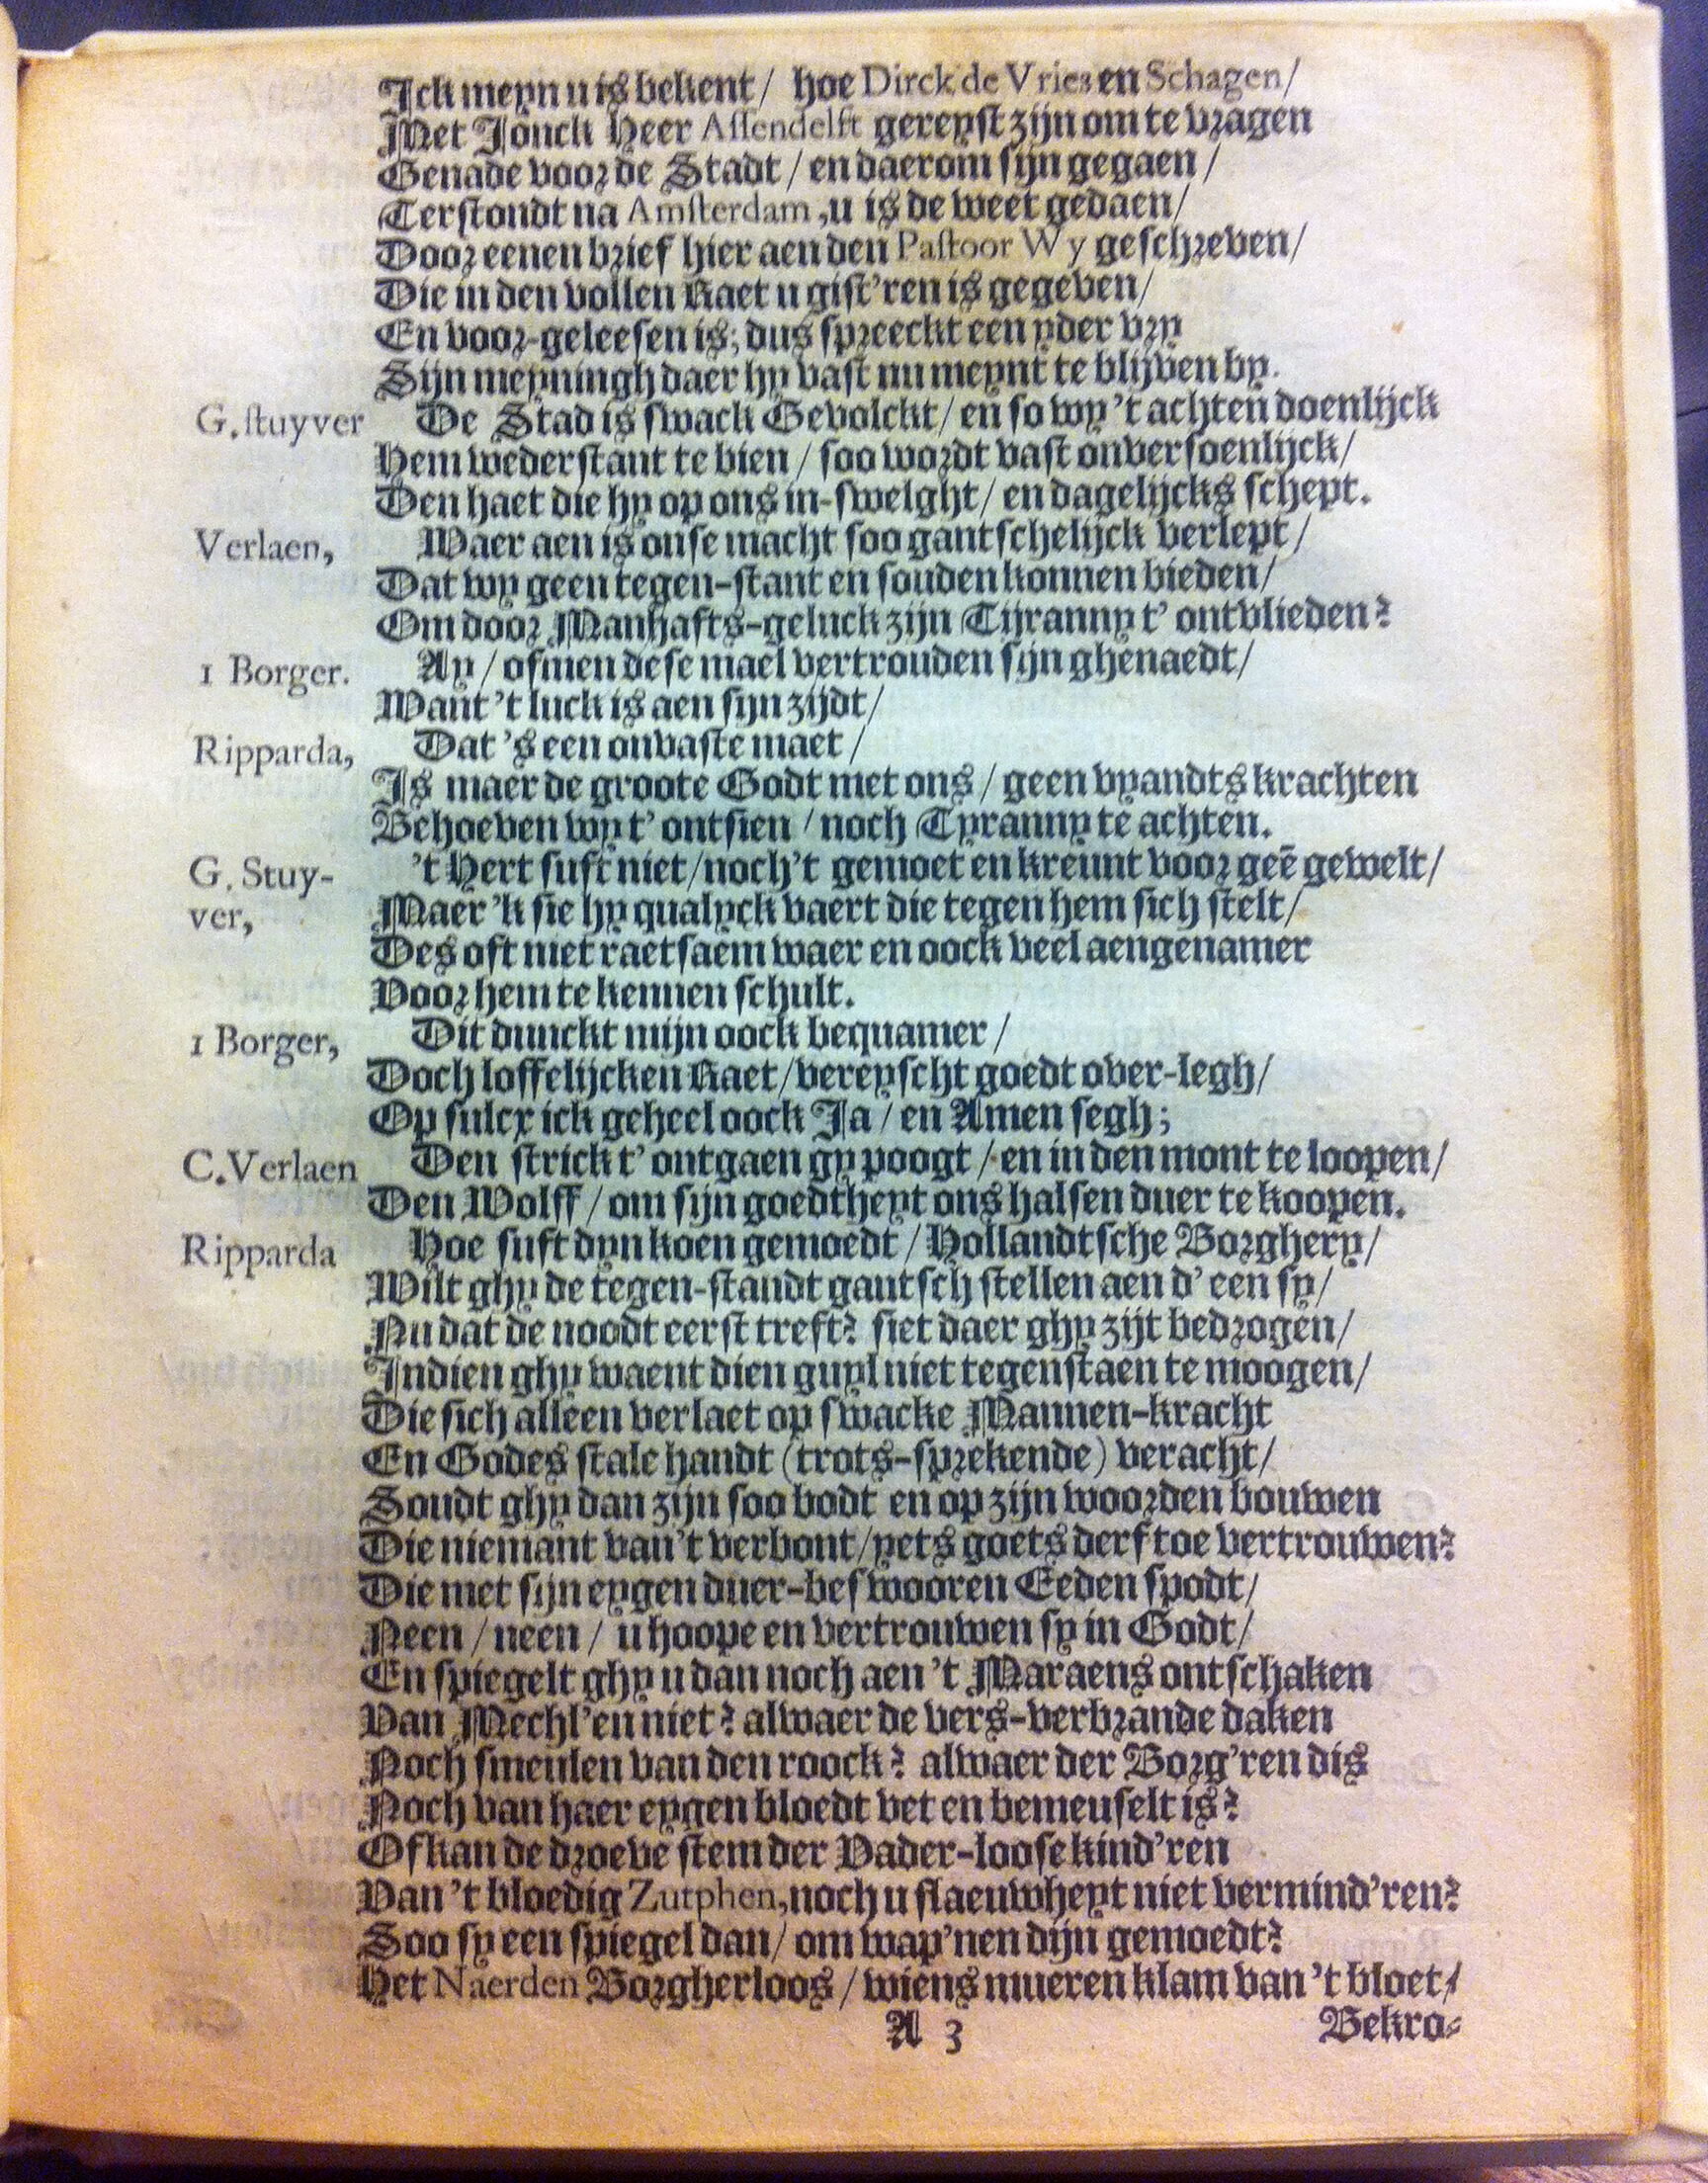 Ick meyn u is bekent/ hoe Dirck de Vries en Schagen/
Met Jonck Heer Assendelft gereyst zijn om te vragen
Genade voor de Stadt/ en daerom sijn gegaen/
Terstondt na Amsterdam, u is de weet gedaen/
Door eenen brief hier aen den Pastoor Wy geschreven/
Die in den vollen Raet u gist'ren is gegeven/
En voor-geleesen is; dus spreeckt een yder vry
Sijn meyningh daer hy vast nu meynt te blijven by.
G. stuyver De Stad is swack Gevolckt/ en so wy 't achten doenlijck
Hem wederstant te bien/ soo wordt vast onversoenlijck/
Den haet die hy op ons in-swelght/ en dagelijcks schept.
Verlaen, Waer aen is onse macht soo gantschelijck verlept/
Dat wy geen tegen-stant en souden konnen bieden/
Om door Manhafts-geluck zijn Tijranny t' ontvlieden?
1 Borger. Ay/ ofmen dese mael vertrouden sijn ghenaedt/
Want 't luck is aen sijn zijdt/
Ripparda, Dat 's een onvaste maet/
Is maer de groote Godt met ons/ geen vyandts krachten
Behoeven wy t' ontsien/ noch Tyranny te achten.
G. Stuy- 't Hert suft niet/ noch 't gemoet en kreunt voor geē gewelt/
ver, Maer 'k sie hy qualyck vaert die tegen hem sich stelt/
Des oft niet raetsaem waer en oock veel aengenamer
Voor hem te kennen schult.
1 Borger, Dit dunckt mijn oock bequamer/
Doch loffelijcken Raet/ vereyscht goedt over-legh/
Op sulcx ick geheel oock Ja/ en Amen segh;
C. Verlaen Den strick t' ontgaen gy poogt/ en in den mont te loopen/
Den Wolff/ om sijn goedtheyt ons halsen duer te koopen.
Ripparda Hoe suft dyn koen gemoedt/ Hollandtsche Borghery/
Wilt ghy de tegen-standt gantsch stellen aen d' een sy/
Nu dat de noodt eerst treft? siet daer ghy zijt bedrogen/
Indien ghy waent dien guyl niet tegenstaen te moogen/
Die sich alleen verlaet op swacke Mannen-kracht
En Godes stale handt (trots-sprekende) veracht/
Soudt ghy dan zijn soo bodt en op zijn woorden bouwen
Die niemant van't verbont/ yets goets derf toe vertrouwen?
Die met sijn eygen duer-beswooren Eeden spodt/
Neen/ neen/ u hoope en vertrouwen sy in Godt/
En spiegelt ghy u dan noch aen 't Maraens ontschaken
Van Mechl'en niet? alwaer de vers-verbrande daken
Noch smeulen van den roock? alwaer der Borg'ren dis
Noch van haer eygen bloedt vet en bemeuselt is?
Of kan de droeve stem der Vader-loose kind'ren
Van 't bloedig Zutphen, noch u flaeuwheyt niet vermind'ren?
Soo sy een spiegel dan/ om wap'nen dijn gemoedt?
Het Naerden Borgherloos/ wiens mueren klam van 't bloet/
A 3 Bekro-